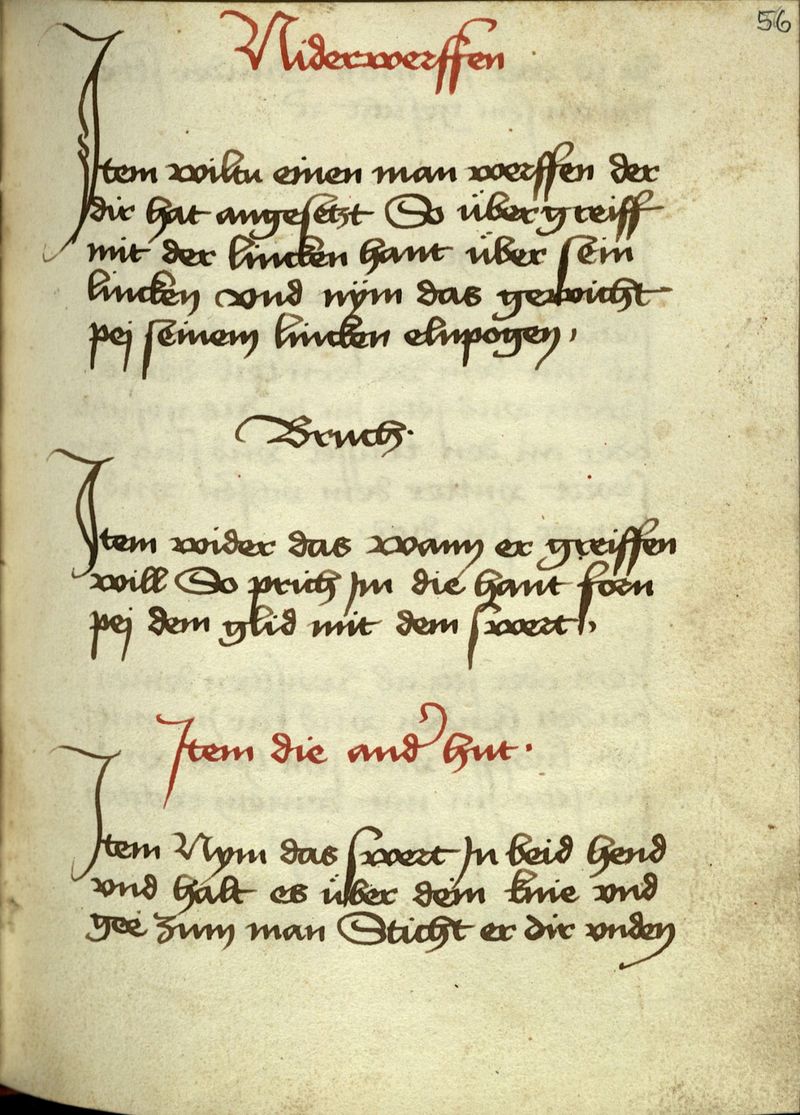 56
Niderwerffen
Item wiltu einen man werffen der
dir hat angesetzt So über greiff
mit der lincken hant über sein
lincken vnd nÿm das gewicht
pej seinem lincken elnpogen,
Bruch·
Item wider das wann er greiffen
will So prich Im die hant forn
pej dem glid mit dem swert,
Item die and' hut·
Item Nym das swert In beid hend
vnd halt es über dein knie vnd
gee zum man Sticht er dir vnden